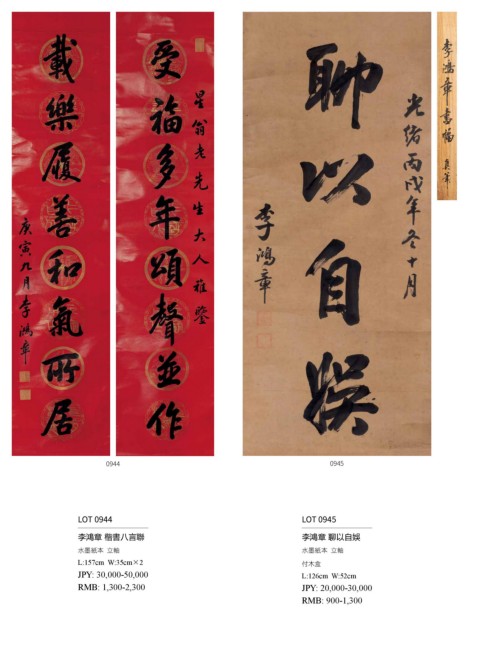 受福多年頌聲並作
星翁老先生大人雅鑒
載樂履善和氣所居
庚寅九月李鴻章
0944
聊以自娛
光緒丙戌年冬十月
李鴻章
李鴻章書幅
真筆
0945
LOT 0944
李鴻章 楷書八言聯
水墨紙本 立軸
L:157cm W:35cm×2
JPY: 30,000-50,000
RMB: 1,300-2,300
LOT 0945
李鴻章 聊以自娛
水墨紙本 立軸
付木盒
L:126cm W:52cm
JPY: 20,000-30,000
RMB: 900-1,300